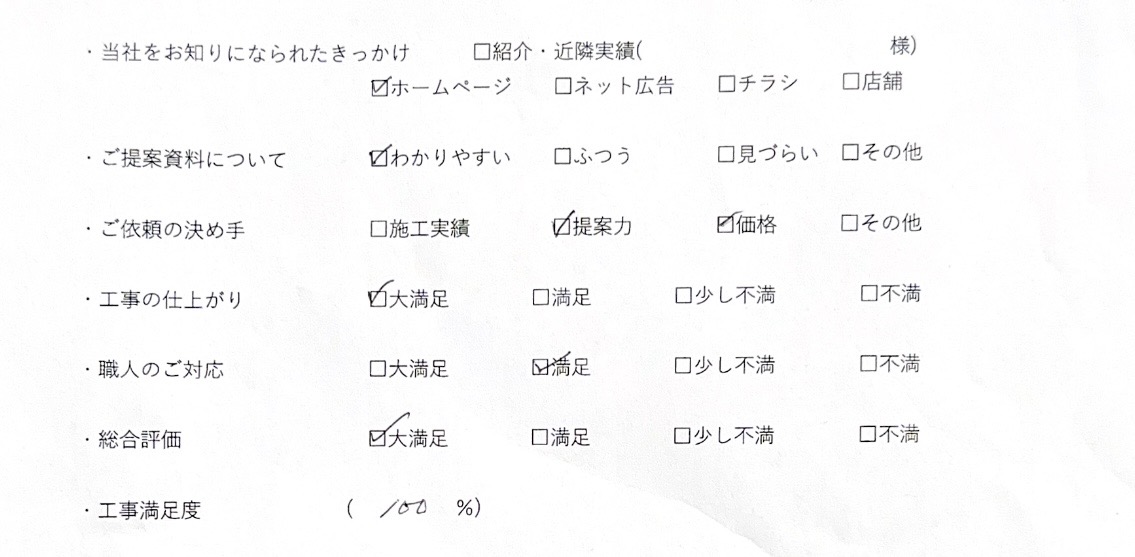 ・当社をお知りになられたきっかけ □紹介・近隣実績( 様)
☑ホームページ □ネット広告 □チラシ □店舗
・ご提案資料について ☑わかりやすい □ふつう □見づらい □その他
・ご依頼の決め手 □施工実績 ☑提案力 ☑価格 □その他
・工事の仕上がり ☑大満足 □満足 □少し不満 □不満
・職人のご対応 □大満足 ☑満足 □少し不満 □不満
・総合評価 ☑大満足 □満足 □少し不満 □不満
・工事満足度 ( 100 %)